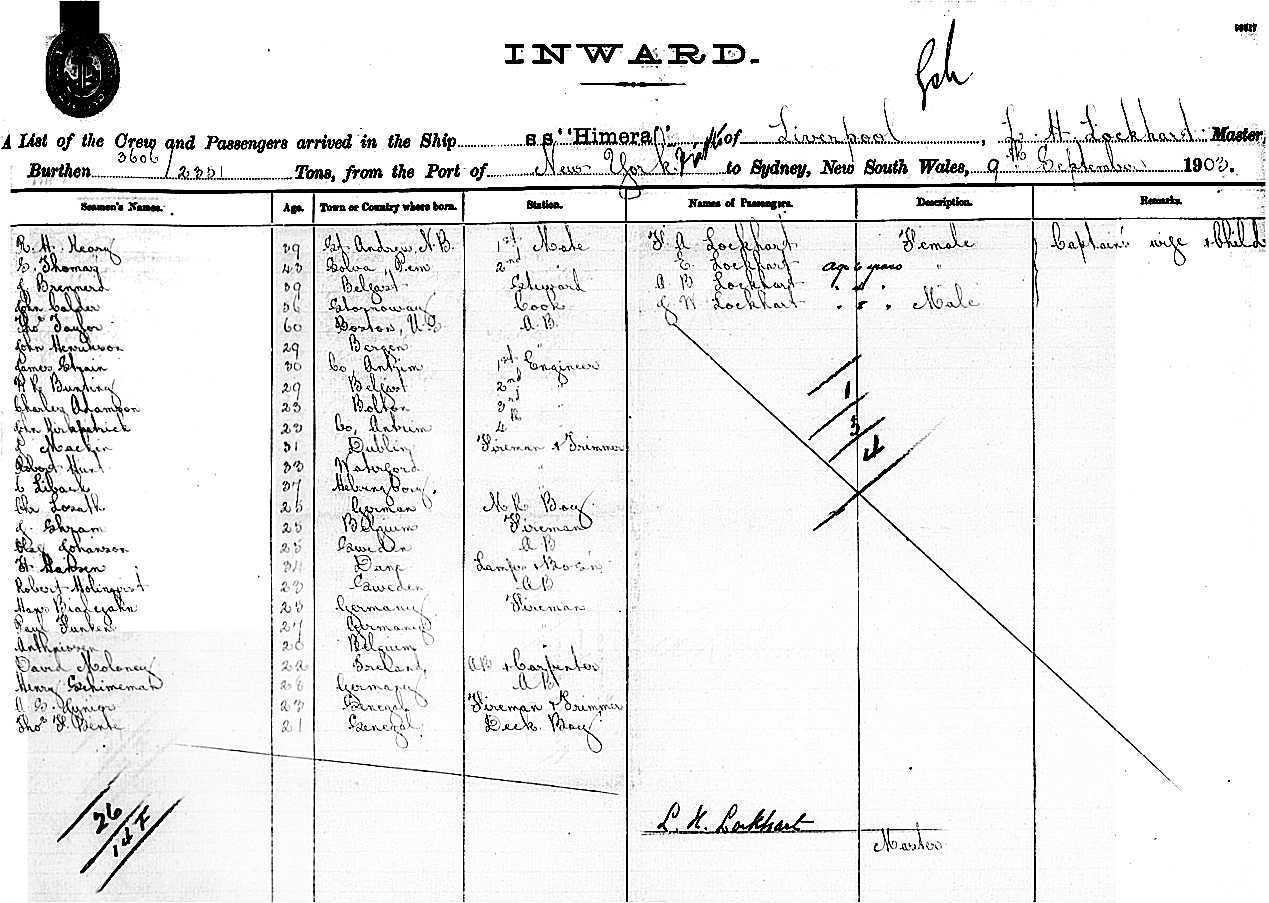 INWARD.
A List of the Crew and Passengers arrived in the Ship s s "Himera" of Liverpool, L. H. Lockhard Master,
Burthen 3606 / 2351 Tons, from the Port of New York to Sydney, New South Wales, 9th September 1903.
Seamen's Names. Age. Town or Country where born. Station. Names of Passengers. Description. Remarks.
R. H. 39 St. Andrew, N.B. 1st Mate F A Lockhart Female Captain's wife & Child
E. Thomas 43 Solva, Pem 2nd " E. Lockhart age 6 years "
J Brennerd 39 Belfast Steward A B Lockhart " 4 " "
John Calder 36 Stornoway Cook J W Lockhart " " Male
Thos Taylor 60 Boston, U.S. A.B.
John Henrikson 29 Bergen "
James Strain 30 Co, Antrim 1st Engineer
H R Bunting 29 Belfast 2nd "
Charley Adamson 23 Bolton 3rd "
John Kirkpatrick 23 Co, Antrim 4th "
J. Mackin 31 Dublin Fireman & Trimmer
Robert Hunt 33 Waterford "
C Liback 37 Helsingborg, "
Chr Losath 25 German M R Boy
J. Shram 25 Belgium Fireman
Olaf Johanson 25 Sweden A B
H Hansen 34 Dane Lamps & Bo's'n
Robert Molinqvist 23 Sweden AB
Hans 23 Germany Fireman
Paul Funken 27 Germany "
20 Belgium "
David Moloney 22 Ireland, AB & Carpenter
Henry Schimeman 28 Germany AB
A S. 23 Senegal Fireman & Trimmer
Thos F. Bente 21 Senegal Deck Boy
1
3
4
26
14 F
L. H. Lockhart
Master